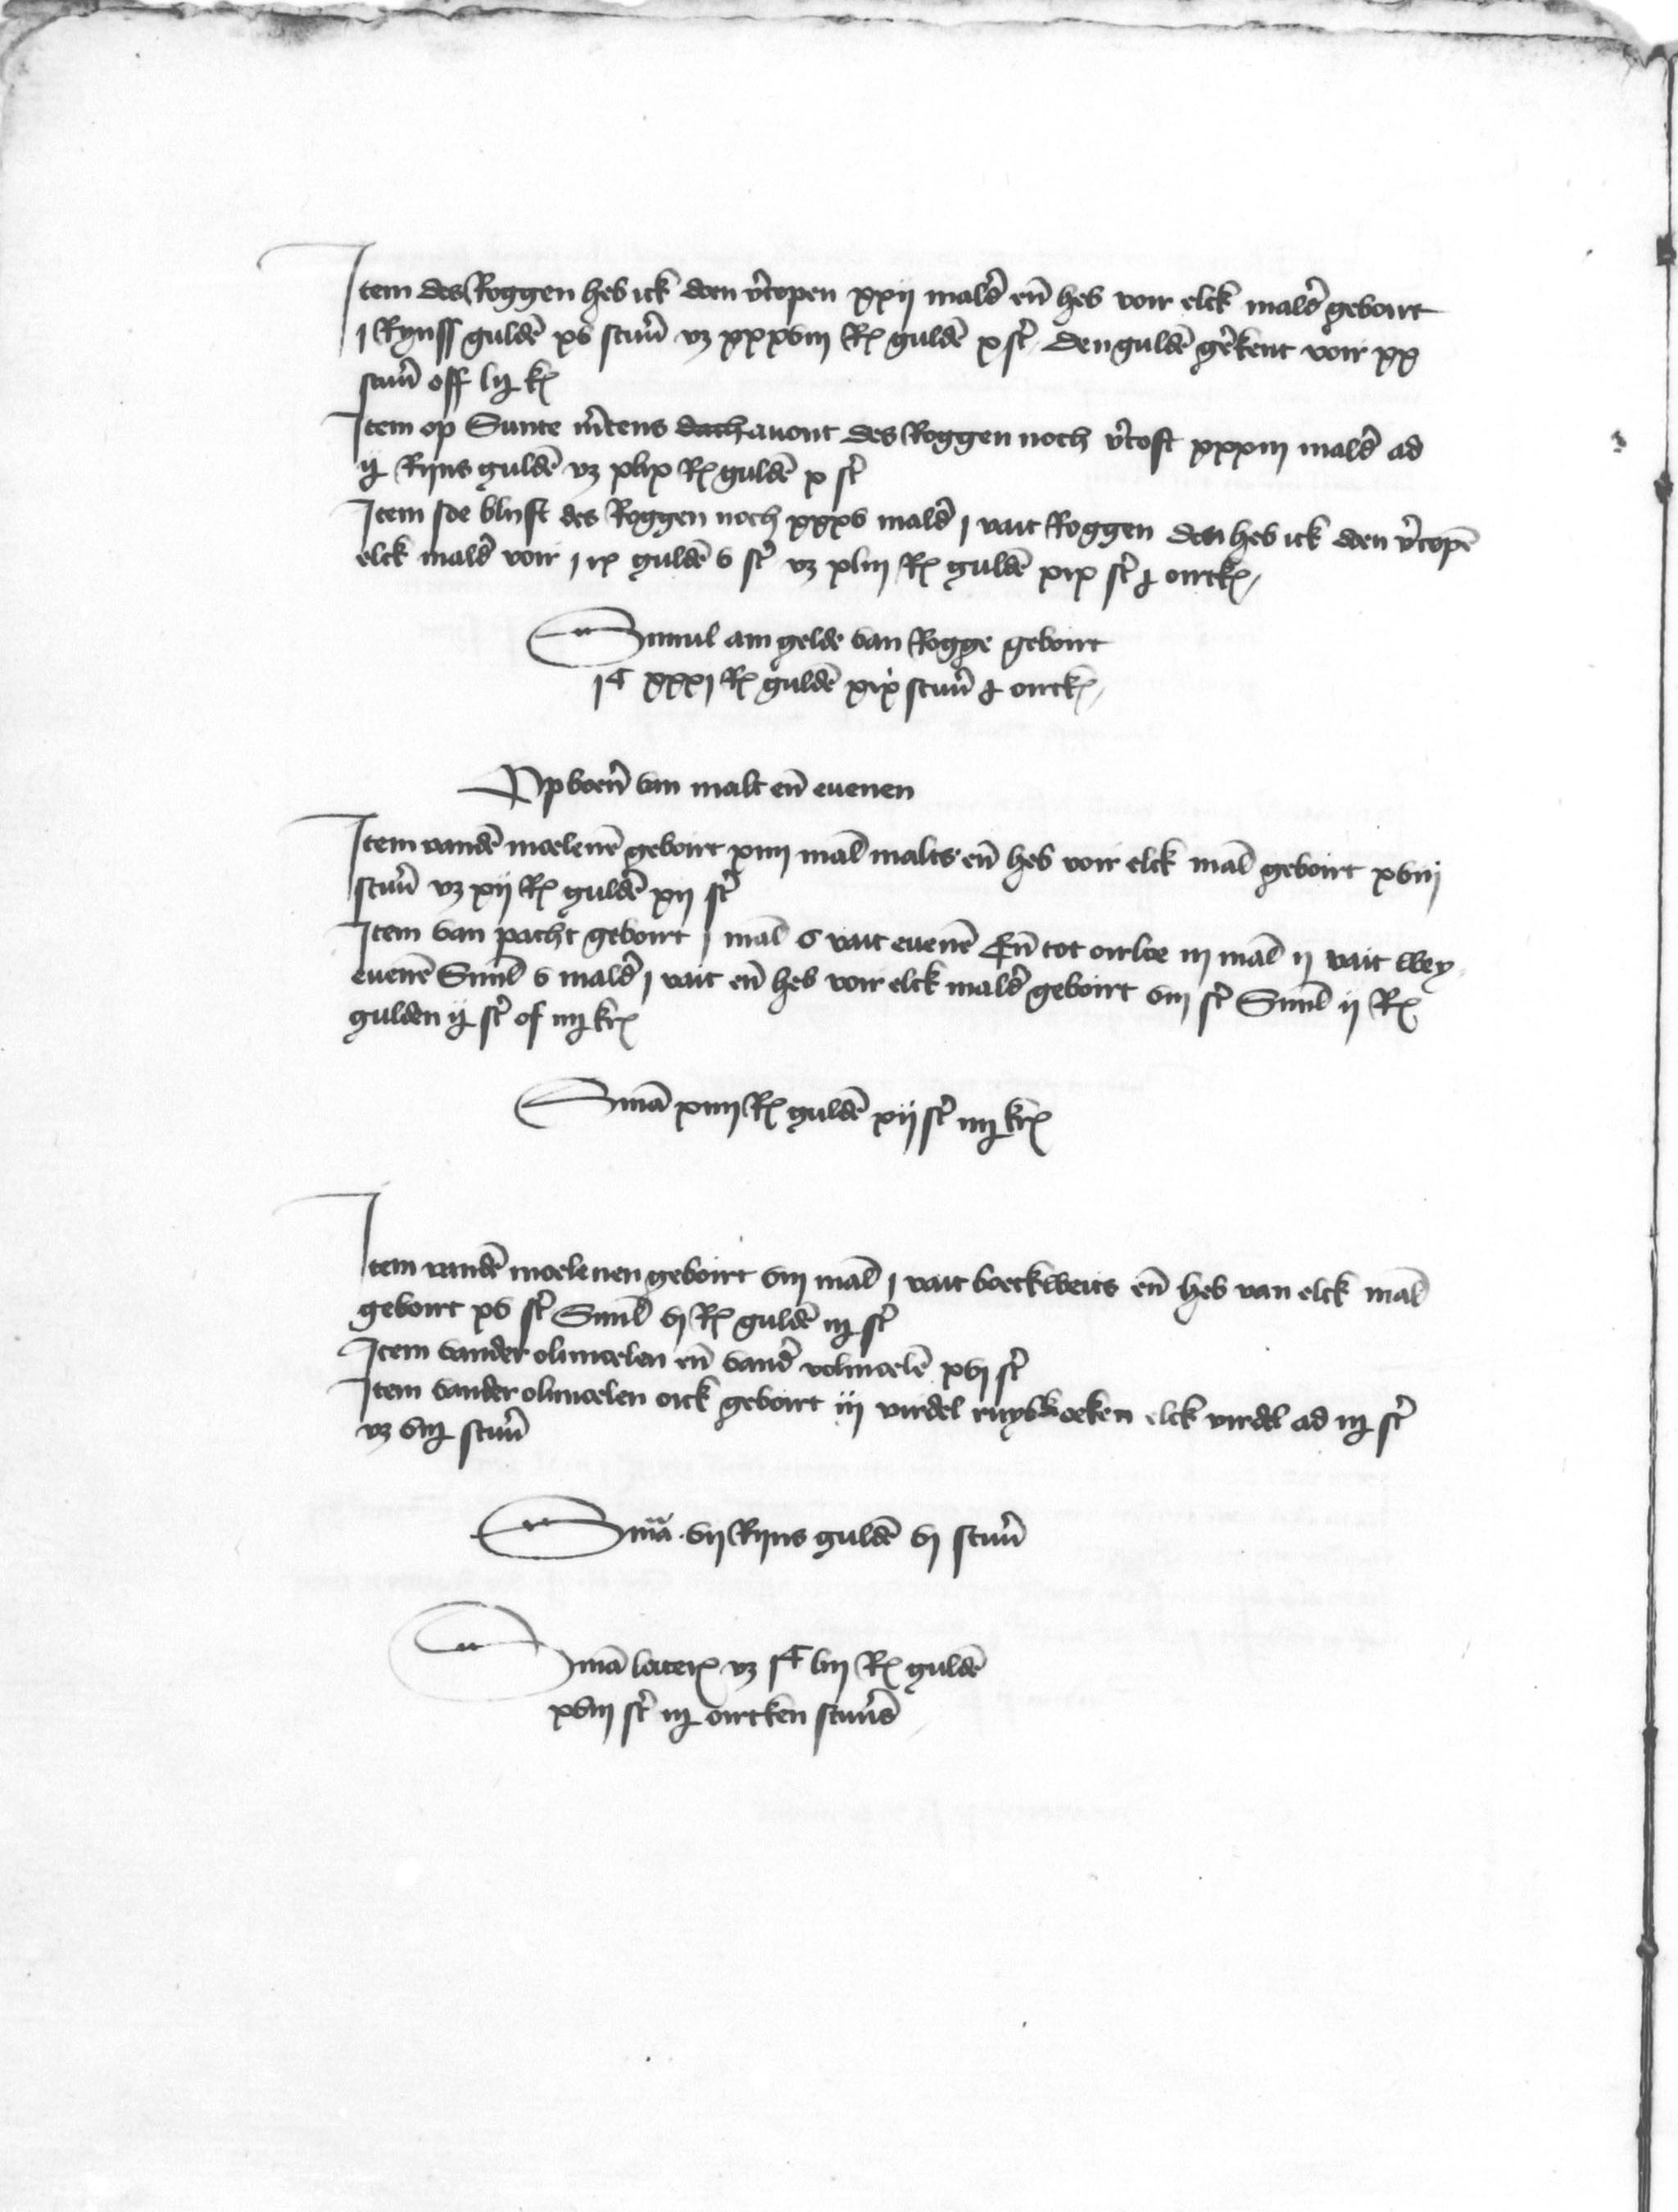 Item des Roggen heb ick doen v'copen xxij mald' en̄ heb voir elck mald' geboirt
j Rynss guldē xv stuu' vz xxxviij R guldē x st' den guldē ger'kent voir xx
stuu' off lij k
Item op Sunte m'tens dach auont des Roggen noch v'coft xxxiij mald' ad
ij Rijns guldē vz xlix R guldē x st'
Item sde blijft des Roggen noch xxxv mald' j vait Roggen den heb ick doen v'copē
elck mald' voir j R guldē v st' vz xliij R guldē xix st' j oirtk
Simul am gelde van Rogge geboirt
jC xxxj R guldē xix stuu' j oirtk
Opboer' van malt en̄ euenen
Item vandē moelenē geboirt xiiij mal' malts en̄ heb voir elck mal' geboirt xviij
stuu' vz xij R guldē xij st'
Item van pacht geboirt j mal' v vait euenē En̄ tot oirloe iij mal' ij vait wey
euenē Simul' v mald' j vait en̄ heb voir elck mald' geboirt viij st' Simul' ij R
gulden ij st' of iiij kr
Summa xiiij R guldē xij st' iiij kr
Item vandē moelenen geboirt viij mal' j vait boeckweits en̄ heb van elck mal'
geboirt xv st' Simul' vj R guldē iij st'
Item vander olimoelen en̄ vand' volmoelē xvj st'
Item vander olimoelen oick geboirt iij virdel ruysskoeken elck virdel ad iij st'
vz viij stuu'
Summa vij Rijns guldē vj stuu'
Summa lateris vz jC liij R guldē
xviij st' iij oirtken stuu's